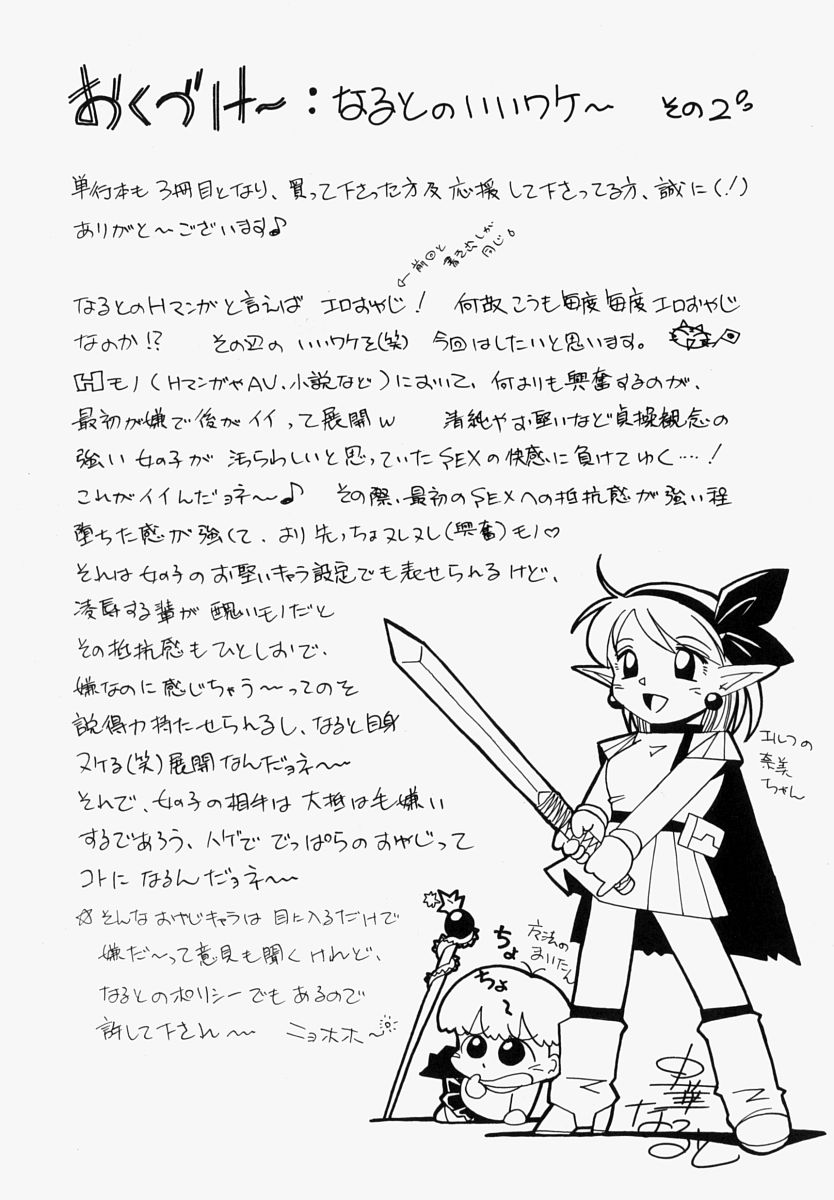 おくづけ〜:なるとのいいワケ〜 その2
単行本も3冊目となり、買って下さった方及応援して下さってる方、誠に(!)
ありがと〜ございます♪
←前回と
書き出しが
同じ。
なるとのHマンガと言えば エロおやじ! 何故こうも毎度毎度エロおやじ
なのか!? その辺の いいワケを(笑) 今回はしたいと思います。
Hモノ(HマンガやAV、小説など)において、何よりも興奮するのが、
最初が嫌で後がイイって展開w 清純やお堅いなど貞操観念の
強い女の子が 汚らわしいと思っていたSEXの快感に負けてゆく…!
これがイイんだョネ〜♪ その際、最初のSEXへの抵抗感が強い程
堕ちた感が強くて、より先っちょヌレヌレ(興奮)モノ♡
それは女の子のお堅いキャラ設定でも表せられるけど、
凌辱する輩が 醜いモノだと
その抵抗感もひとしおで、
嫌なのに感じちゃう〜ってのも
説得力持たせられるし、なると自身
ヌケる(笑)展開なんだョネ〜
それで、女の子の相手は 大抵は毛嫌い
するであろう、ハゲで でっぱらのおやじって
コトに なるんだョネ〜
☆そんなおやじキャラは 目に入るだけで
嫌だ〜って意見も聞くけれど、
なるとのポリシーでもあるので
許して下され〜 ニョホホ〜
エルフの
奈美
ちゃん
ちょ
ちょ
〜
まいたん
中華
なると